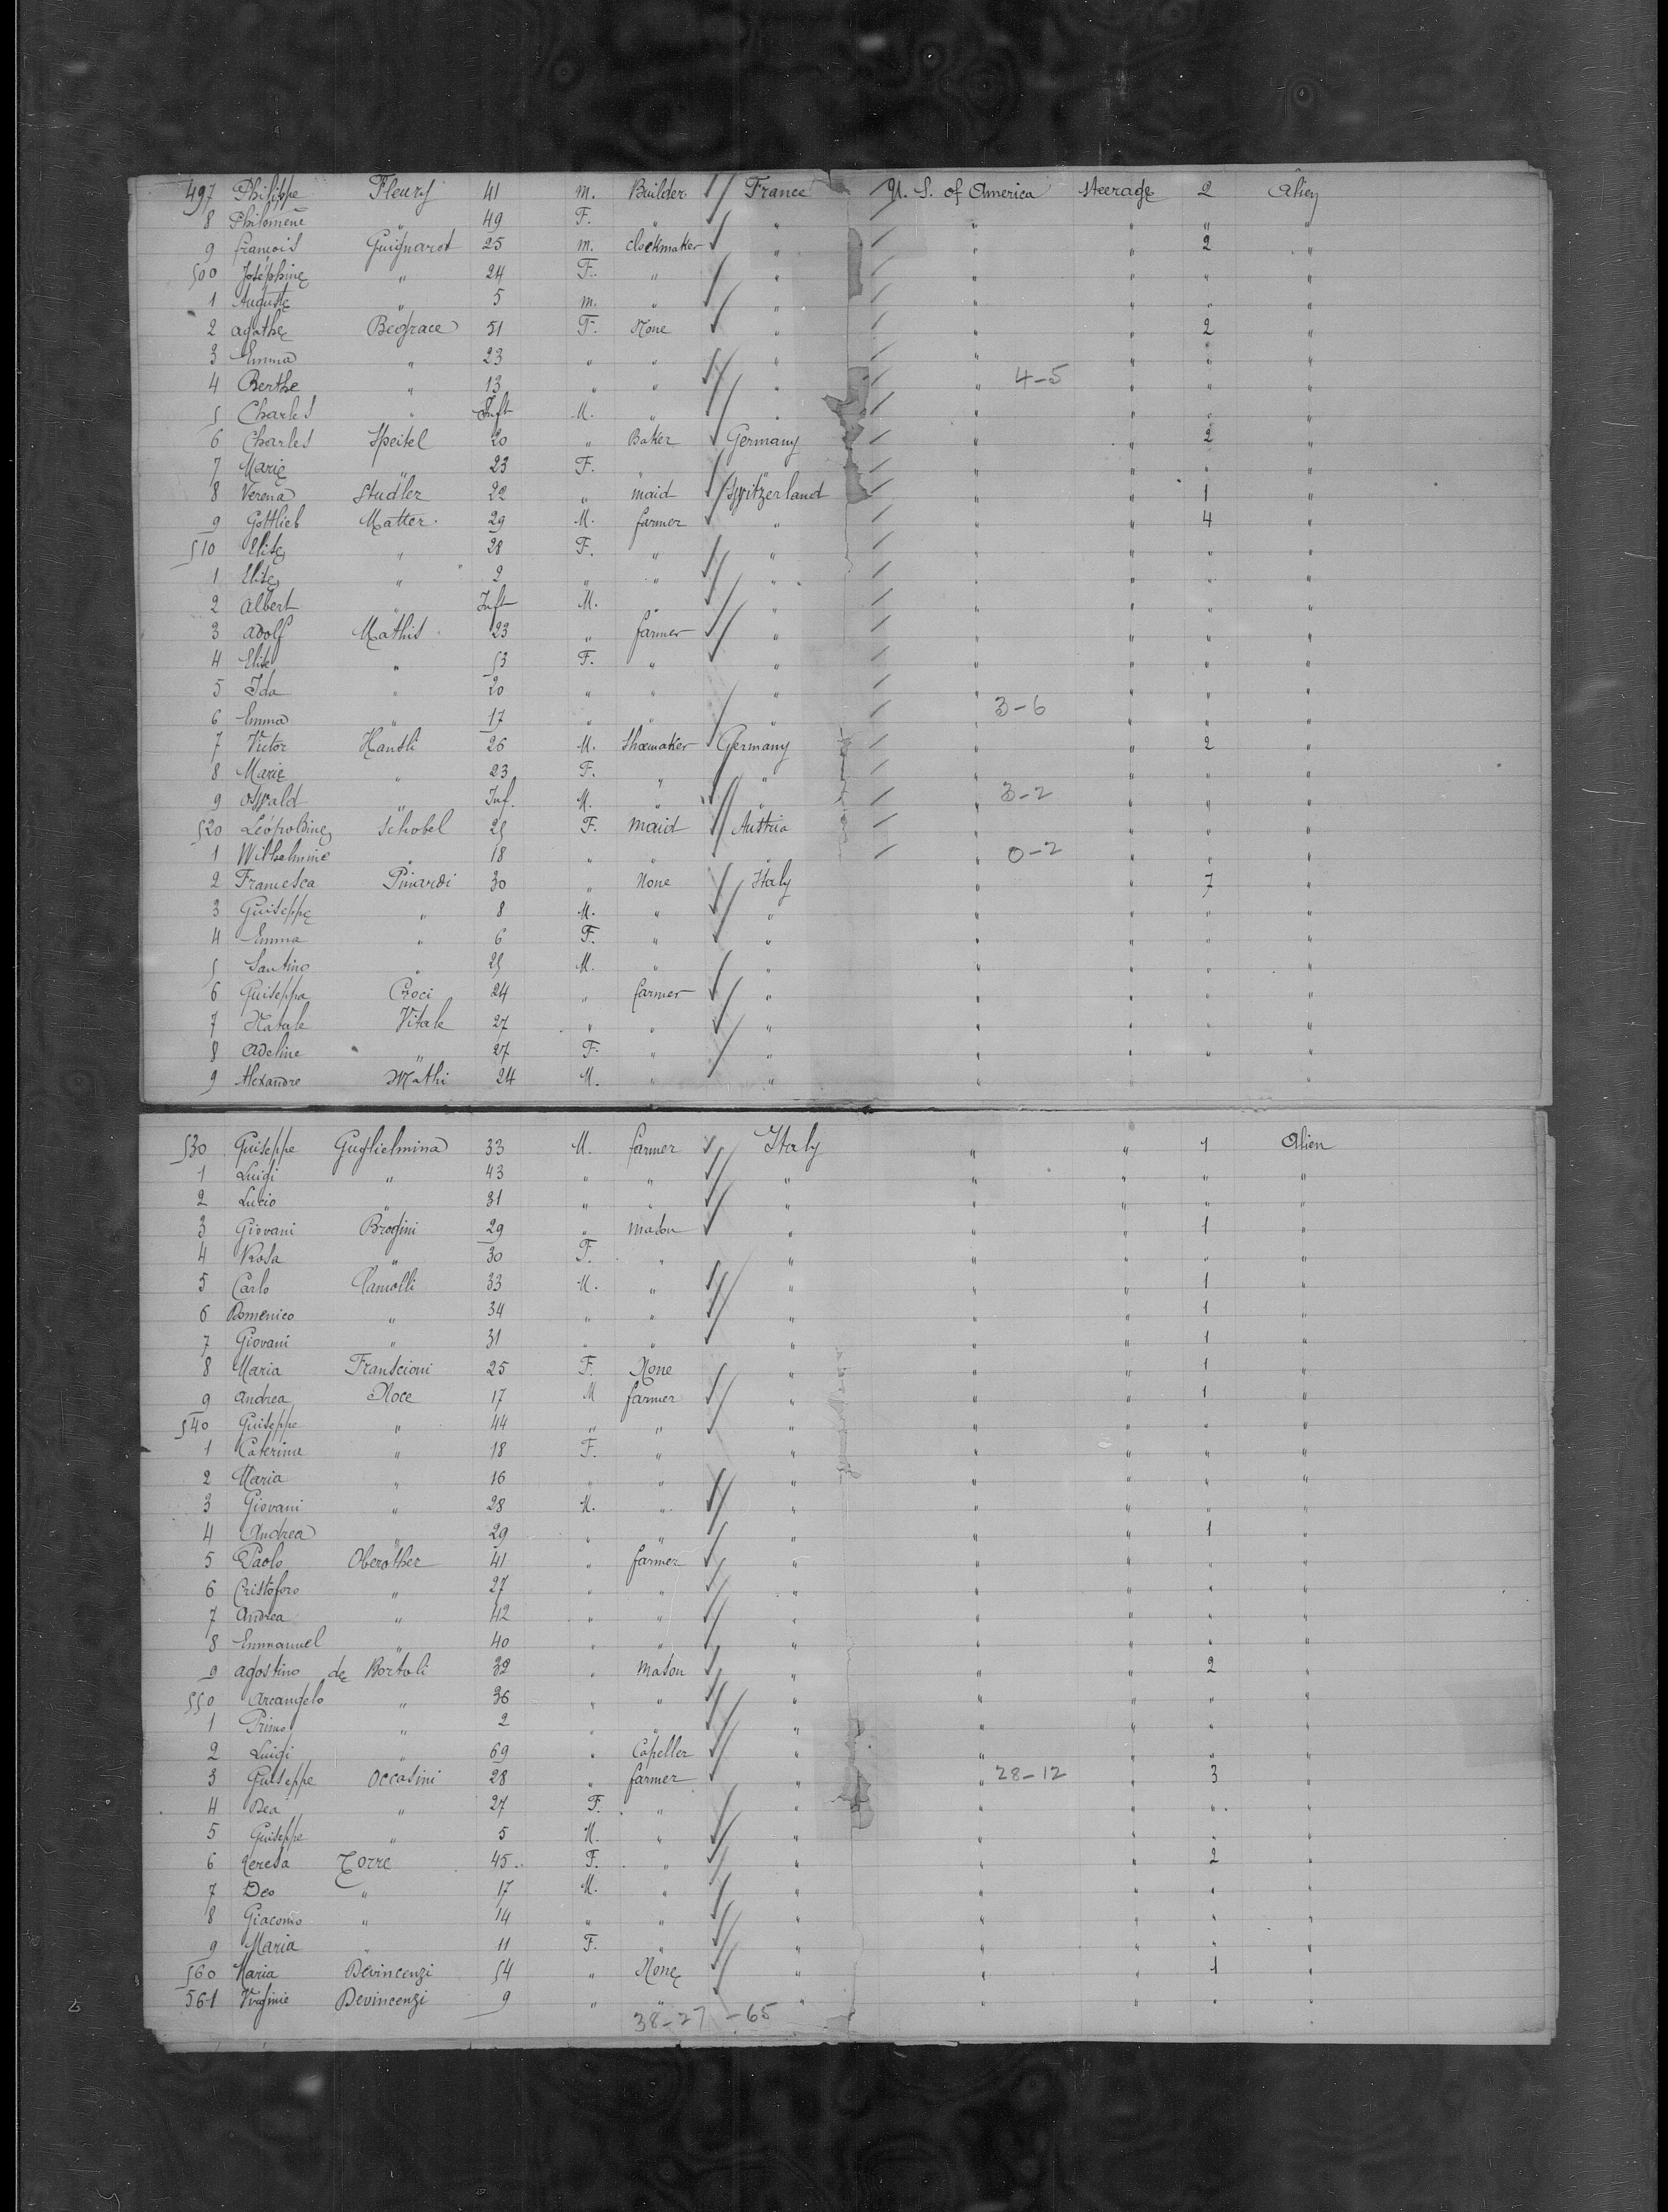 497 Philippe Fleury 41 m. Builder France U. S. of America Steerage 2 Alien
8 Philomène " 49 F. " " " " " "
9 françois Guignard 25 m. clockmaker " " " 2 "
500 Joséphine " 24 F. " " " " " "
1 Auguste " 5 m. " " " " " "
2 agathe 51 F. None " " " 2 "
3 Emma " 23 " " " " " " "
4 Berthe " 13 " " " " 4-5 " " "
5 Charles " Inft M. " " " " " "
6 Charles Speitel 20 " Baker Germany " " 2 "
7 Marie " 23 F. " " " " " "
8 Verena Studler 22 " maid Switzerland " " 1 "
9 Gottlieb Matter. 29 M. farmer " " " 4 "
510 Elise " 28 F. " " " " " "
1 Elise " 2 " " " " " " "
2 Albert " Inft M. " " " " " "
3 Adolf Mathis 23 " farmer " " " " "
4 Elise " 53 F. " " " " " "
5 Ida " 20 " " " " " " "
6 Emma " 17 " " " " 3-6 " " "
7 Victor Hansli 26 M. Shoemaker Germany " " 2 "
8 Marie " 23 F. " " " " " "
9 Oswald " Inf. M. " " " 3-2 " " "
520 Léopoldine Schobel 25 F. maid Austria " " " "
1 Wilhelmine " 18 " " " " 0-2 " " "
2 Francesca Pinardi 30 " None Italy " " 7 "
3 Guiseppe " 8 M. " " " " " "
4 Emma " 6 F. " " " " " "
5 Santino " 25 M. " " " " " "
6 Guiseppa Croci 24 " farmer " " " " "
7 Natale Vitale 27 " " " " " " "
8 Adeline " 27 F. " " " " " "
9 Alexandre Mathi 24 M. " " " " " "
530 Guiseppe Guglielmina 33 M. farmer Italy " " 1 Alien
1 Luigi " 43 " " " " " " "
2 Lucio " 31 " " " " " " "
3 Giovani Brogini 29 " Mason " " " 1 "
4 Rosa " 30 F. " " " " " "
5 Carlo 33 M. " " " " 1 "
6 Domenico " 34 " " " " " 1 "
7 Giovani " 31 " " " " " 1 "
8 Maria Franscioni 25 F. None " " " 1 "
9 Andrea Noce 17 M farmer " " " 1 "
540 Guiseppe " 44 " " " " " " "
1 Caterina " 18 F. " " " " " "
2 Maria " 16 " " " " " " "
3 Giovani " 28 M. " " " " " "
4 Andrea " 29 " " " " " 1 "
5 Paolo Oberother 41 " farmer " " " " "
6 Cristoforo " 27 " " " " " " "
7 Andrea " 42 " " " " " " "
8 Emmanuel " 40 " " " " " " "
9 agostino de Bortoli 32 " Mason " " " 2 "
550 Arcangelo " 36 " " " " " " "
1 Primo " 2 " " " " " " "
2 Luigi " 69 " Capeller " " " " "
3 Guiseppe Occasini 28 " farmer " " 28-12 " 3 "
4 Dea " 27 F. " " " " " "
5 Guiseppe " 5 M. " " " " " "
6 Teresa Torre 45 F. " " " " 2 "
7 Deo " 17 M. " " " " " "
8 Giacomo " 14 " " " " " " "
9 Maria " 11 F. " " " " " "
560 Maria Devincenzi 54 " None " " " 1 "
561 Virginie Devincenzi 9 " " " " " " "
38-27-65